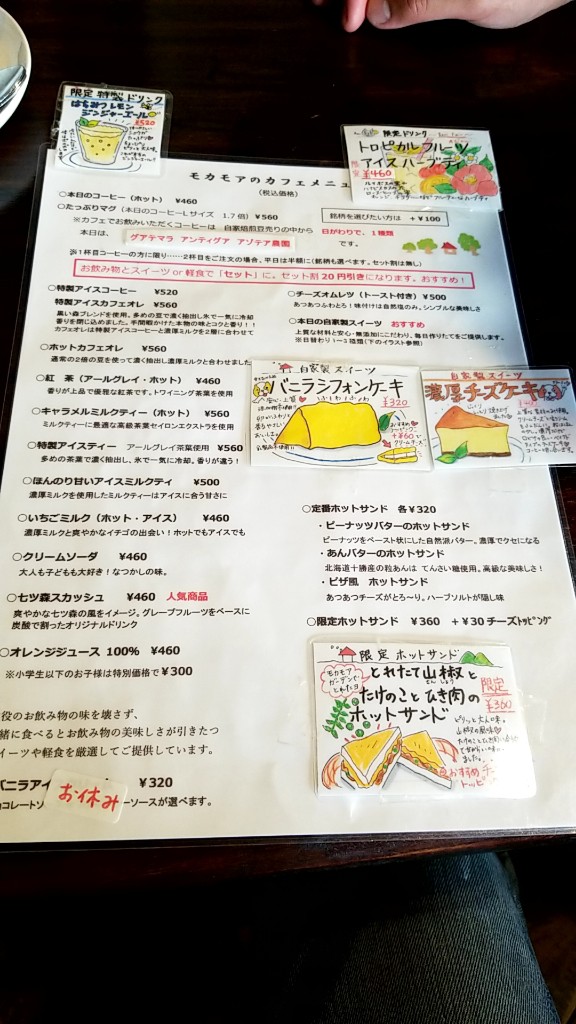 限定 特製 ドリンク
はちみつレモン
ジンジャーエール
¥520
限定ドリンク
トロピカルフルーツ
アイスハーブティー
限定
¥460
モカモアのカフェメニュ
(税込価格)
○本日のコーヒー（ホット） ¥460
○たっぷりマグ（本日のコーヒーLサイズ 1.7倍）¥560
※カフェでお飲みいただくコーヒーは 自家焙煎豆売りの中から 日がわりで、１種類
本日は、 グアテマラ アンティグア アゾテア農園 です。
銘柄を選びたい方は ＋¥100
※１杯目コーヒーの方に限り……２杯目をご注文の場合、平日は半額に(銘柄も選べます。セット割は無し)
お飲み物とスイーツ or 軽食で「セット」に。セット割20円引きになります。おすすめ！
○特製アイスコーヒー ¥520
特製アイスカフェオレ ¥560
黒い森ブレンドを使用。多めの豆で濃く抽出し氷で一気に冷却
香りを閉じ込めました。手間暇かけた本物の味とコクと香り！！
カフェオレは特製アイスコーヒーと濃厚ミルクを２層に合わせて
○ホットカフェオレ ¥560
通常の２倍の豆を使って濃く抽出し濃厚ミルクと合わせました
○紅 茶（アールグレイ・ホット） ¥460
香りが上品で優雅な紅茶です。トワイニング茶葉を使用
○キャラメルミルクティー（ホット） ¥560
ミルクティーに最適な高級茶葉セイロンエクストラを使用
○特製アイスティー アールグレイ茶葉使用 ¥560
多めの茶葉で濃く抽出し、氷で一気に冷却。香りが違う！
○ほんのり甘いアイスミルクティ ¥500
濃厚ミルクを使用したミルクティーはアイスに合う甘さに
○いちごミルク（ホット・アイス） ¥460
濃厚ミルクと爽やかなイチゴの出会い！ホットでもアイスでも
○クリームソーダ ¥460
大人も子どもも大好き！なつかしの味。
○七ツ森スカッシュ ¥460 人気商品
爽やかな七ツ森の風をイメージ。グレープフルーツをベースに
炭酸で割ったオリジナルドリンク
○オレンジジュース 100％ ¥460
※小学生以下のお子様は特別価格で¥300
役のお飲み物の味を壊さず、
緒に食べるとお飲み物の美味しさが引きたつ
イーツや軽食を厳選してご提供しています。
バニラアイ ¥320
お休み
ョコレートソ ーソースが選べます。
○チーズオムレツ（トースト付き）¥500
あつあつふわとろ！味付けは自然塩のみ。シンプルな美味しさ
○本日の自家製スイーツ おすすめ
上質な材料と安心・無添加にこだわり、毎日作りたてをご提供します。
※日替わり１～３種類（下のイラスト参照）
自家製スイーツ
バニラシフォンケーキ
¥320
自家製スイーツ
濃厚チーズケーキ
○定番ホットサンド 各¥320
・ピーナッツバターのホットサンド
ピーナッツをペースト状にした自然派バター。濃厚でクセになる
・あんバターのホットサンド
北海道十勝産の粒あんは てんさい糖使用。高級な美味しさ！
・ピザ風 ホットサンド
あつあつチーズがとろ～り。ハーブソルトが隠し味
○限定ホットサンド ¥360 ＋¥30チーズトッピング
限定 ホットサンド
モカモア
ガーデンで
とれたヨ
とれたて山椒と
たけのことひき肉の
ホットサンド
限定
¥360